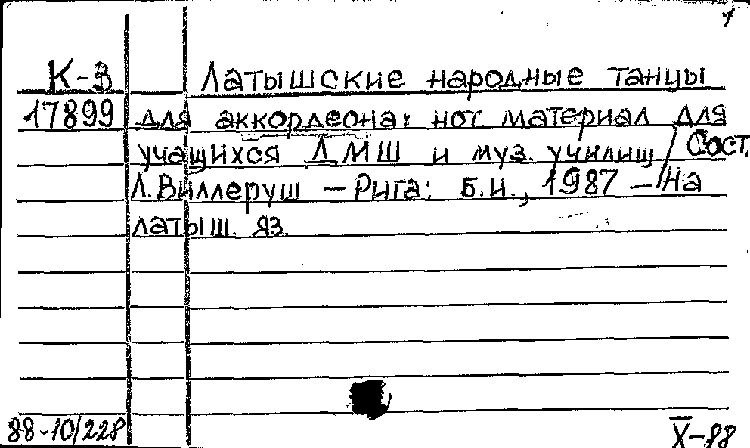 К-3 Латышские народные танцы
17899 для аккордеона: нот. материал для
учащихся ДМШ и муз. училищ / Сост.
Л. Виллеруш — Рига: Б.и., 1987 — На
латыш. яз.
88-10/228 X-88